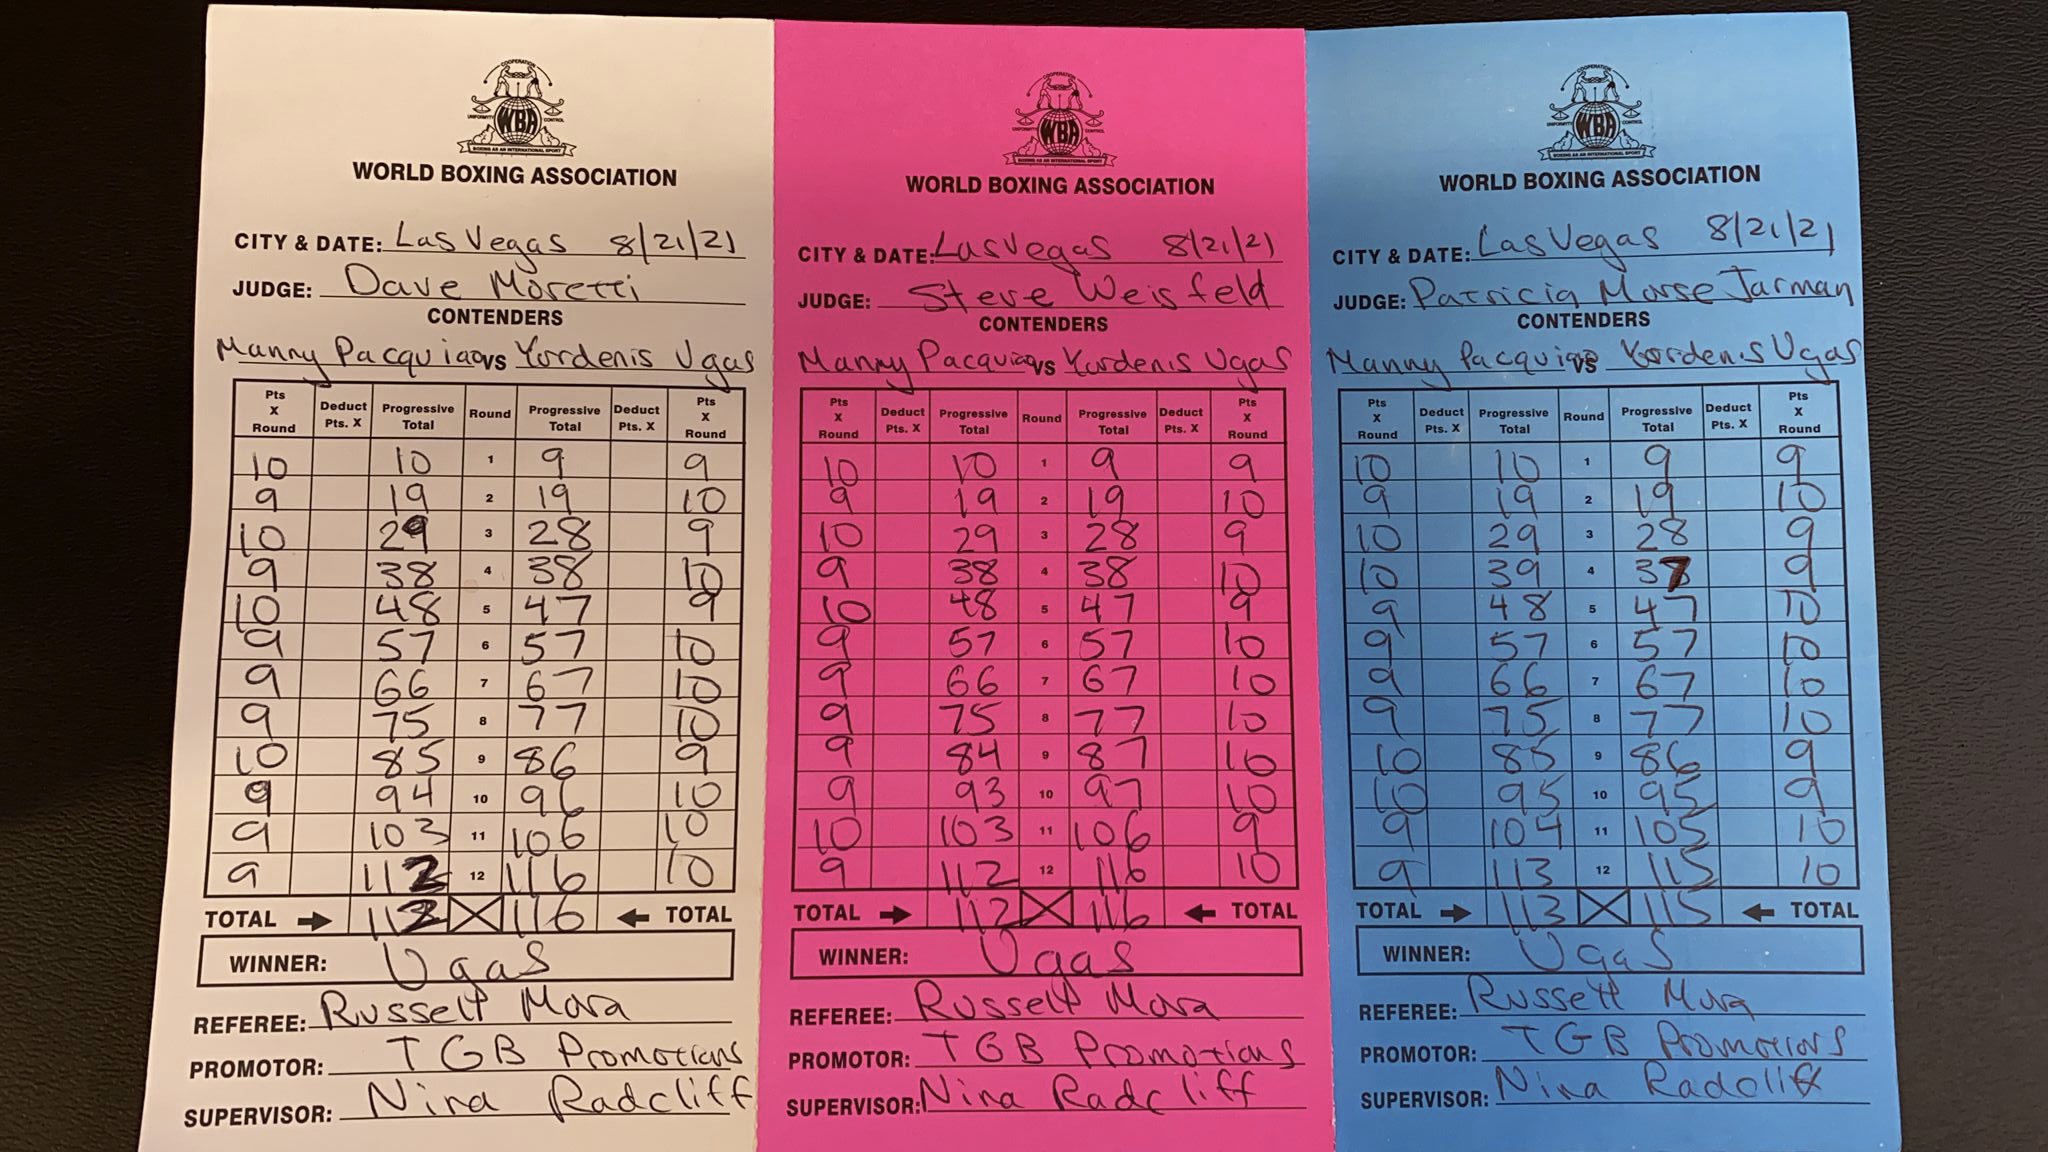 COOPERATION
UNIFORMITY WBA CONTROL
BOXING AS AN INTERNATIONAL SPORT
WORLD BOXING ASSOCIATION
CITY & DATE: Las Vegas 8/21/21
JUDGE: Dave Moretti
CONTENDERS
Manny Pacquiao VS Yordenis Ugas
Pts X Round Deduct Pts. X Progressive Total Round Progressive Total Deduct Pts. X Pts X Round
10 10 1 9 9
9 19 2 19 10
10 29 3 28 9
9 38 4 38 10
10 48 5 47 9
9 57 6 57 10
9 66 7 67 10
9 75 8 77 10
10 85 9 86 9
9 94 10 96 10
9 103 11 106 10
9 112 12 116 10
TOTAL 112 116 TOTAL
WINNER: Ugas
REFEREE: Russell Mora
PROMOTOR: TGB Promotions
SUPERVISOR: Nina Radcliff
COOPERATION
UNIFORMITY WBA CONTROL
BOXING AS AN INTERNATIONAL SPORT
WORLD BOXING ASSOCIATION
CITY & DATE: Las Vegas 8/21/21
JUDGE: Steve Weisfeld
CONTENDERS
Manny Pacquiao VS Yordenis Ugas
Pts X Round Deduct Pts. X Progressive Total Round Progressive Total Deduct Pts. X Pts X Round
10 10 1 9 9
9 19 2 19 10
10 29 3 28 9
9 38 4 38 10
10 48 5 47 9
9 57 6 57 10
9 66 7 67 10
9 75 8 77 10
9 84 9 87 10
9 93 10 97 10
10 103 11 106 9
9 112 12 116 10
TOTAL 112 116 TOTAL
WINNER: Ugas
REFEREE: Russell Mora
PROMOTOR: TGB Promotions
SUPERVISOR: Nina Radcliff
COOPERATION
UNIFORMITY WBA CONTROL
BOXING AS AN INTERNATIONAL SPORT
WORLD BOXING ASSOCIATION
CITY & DATE: Las Vegas 8/21/21
JUDGE: Patricia Morse Jarman
CONTENDERS
Manny Pacquiao VS Yordenis Ugas
Pts X Round Deduct Pts. X Progressive Total Round Progressive Total Deduct Pts. X Pts X Round
10 10 1 9 9
9 19 2 19 10
10 29 3 28 9
10 39 4 37 9
9 48 5 47 10
9 57 6 57 10
9 66 7 67 10
9 75 8 77 10
10 85 9 86 9
10 95 10 95 9
9 104 11 105 10
9 113 12 115 10
TOTAL 113 115 TOTAL
WINNER: Ugas
REFEREE: Russell Mora
PROMOTOR: TGB Promotions
SUPERVISOR: Nina Radcliff